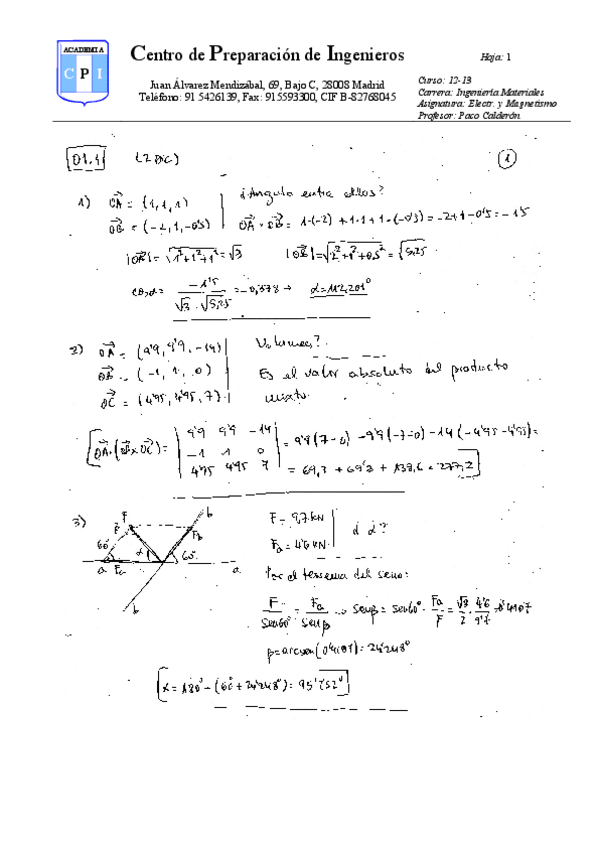 ACADEMIA
CPI
Centro de Preparación de Ingenieros
Hoja: 1
Juan Álvarez Mendizábal, 69, Bajo C, 28008 Madrid
Teléfono: 91 5426139, Fax: 915593300, CIF B-82768045
Curso: 12-13
Carrera: Ingeniería Materiales
Asignatura: Electr. y Magnetismo
Profesor: Paco Calderón
01.1 (2DC) 1
1) OA = (1,1,1) ¿Angulo entre ellos?
OB = (-2,1,-0'5) OA · OB = 1·(-2) + 1·1 + 1·(-0'5) = -2+1-0'5 = -1'5
|OA| = √1²+1²+1² = √3 |OB| = √2²+1²+0,5² = √5,25
cosα = -1'5 / √3·√5,25 = -0,378 → α=112,201°
2) OA = (9'9, 9'9, -14) Volumen?
OB = (-1, 1, 0) Es el valor absoluto del producto
OC = (4'95, 4'95, 7) mixto.
OA·(OB×OC) = 9'9 9'9 -14 = 9'9(7-0) -9'9(-7-0) -14(-4'95-4'95) =
-1 1 0
4'95 4'95 7 = 69,3 + 69'3 + 138,6 = 277,2
3) F b F = 9,7 kN
F Fb Fa = 4'6 kN ¿α?
60° α 60°
a Fa a Por el teorema del seno:
b
F / sen60° = Fa / senβ → senβ = sen60° · Fa/F = √3/2 · 4'6/9'7 = 0'4107
β = arcsen(0'4107) = 24'248°
α = 180° - (60° + 24'248°) = 95'752°